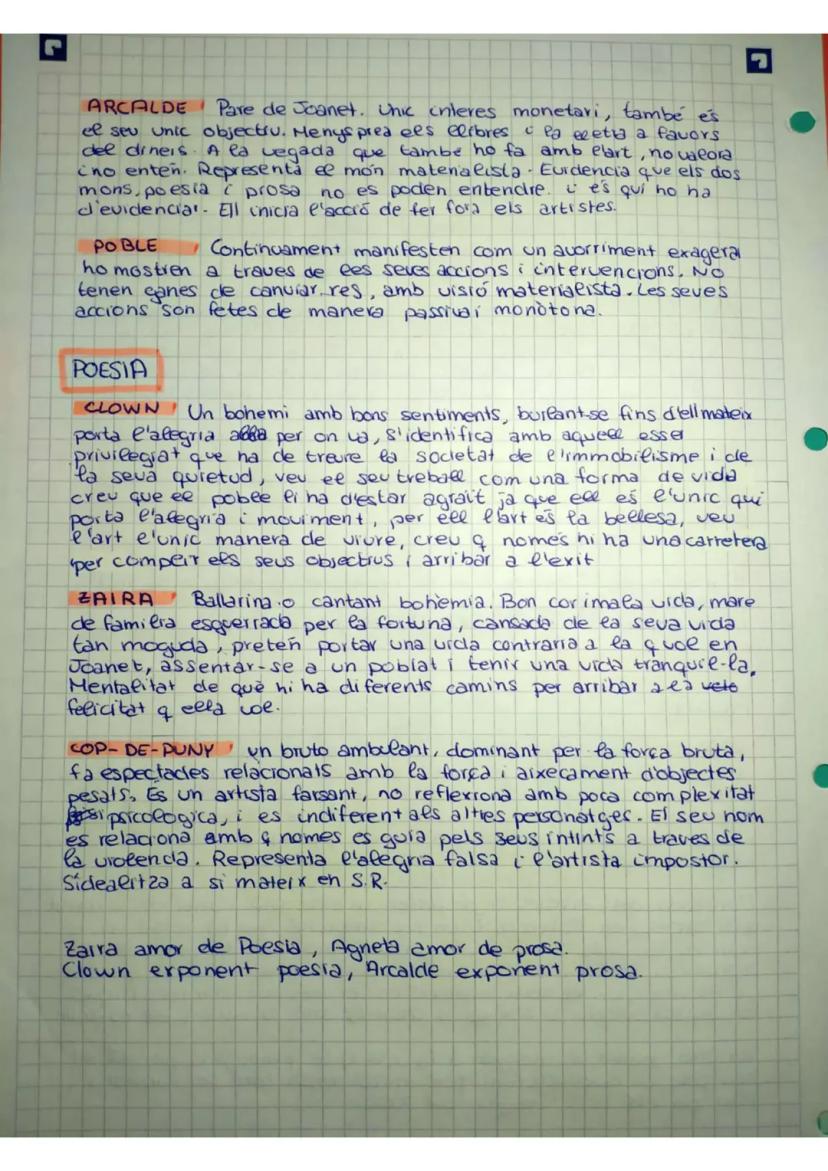 ARCALDE Pare de Joanet. Unic interes monetari, també és
el seu unic objectiu. Menysprea els llibres i la lletra a favors
del diners. A la vegada que tambe ho fa amb l'art, no valora
i no enten. Representa el món materialista. Evidencia que els dos
mons, poesia i prosa no es poden entendre. i és qui ho ha
d'evidenciar. Ell inicia l'acció de fer fora els artistes.
POBLE Continuament manifesten com un avorriment exagerat
ho mostren a traves de les seves accions i intervencions. No
tenen ganes de canviar res, amb visió materialista. Les seves
accions són fetes de manera passiva i monòtona.
POESIA
CLOWN Un bohemi amb bons sentiments, burlant-se fins d'ell mateix
porta l'alegria per on va, s'identifica amb aquell esser
privilegiat que ha de treure la societat de l'immobilisme i de
la seva quietud, veu el seu treball com una forma de vida
creu que el poble li ha d'estar agraït ja que ell es l'unic qui
porta l'alegria i moviment, per ell l'art és la bellesa, veu
l'art l'unic manera de viure, creu q només hi ha una carretera
per complir els seus objectius i arribar a l'exit
ZAIRA Ballarina o cantant bohèmia. Bon cor i mala vida, mare
de familia esguerrada per la fortuna, cansada de la seva vida
tan moguda, pretén portar una vida contraria a la q vol en
Joanet, assentar-se a un poblat i tenir una vida tranquil·la.
Mentalitat de què hi ha diferents camins per arribar a la
felicitat q ella vol.
COP-DE-PUNY un bruto ambulant, dominant per la força bruta,
fa espectacles relacionats amb la força i aixecament d'objectes
pesats. Es un artista farsant, no reflexiona amb poca complexitat
psicologica, i es indiferent als altres personatges. El seu nom
es relaciona amb q nomes es guia pels seus intints a traves de
la violencia. Representa l'alegria falsa i l'artista impostor.
S'idealitza a si mateix en S.R.
Zaira amor de Poesia, Agneta amor de prosa.
Clown exponent poesia, Arcalde exponent prosa.